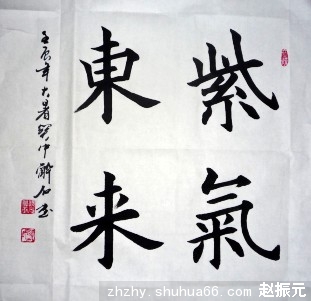 紫氣
東来
壬辰年大暑
zhzhy.shuhua66.com 赵振元